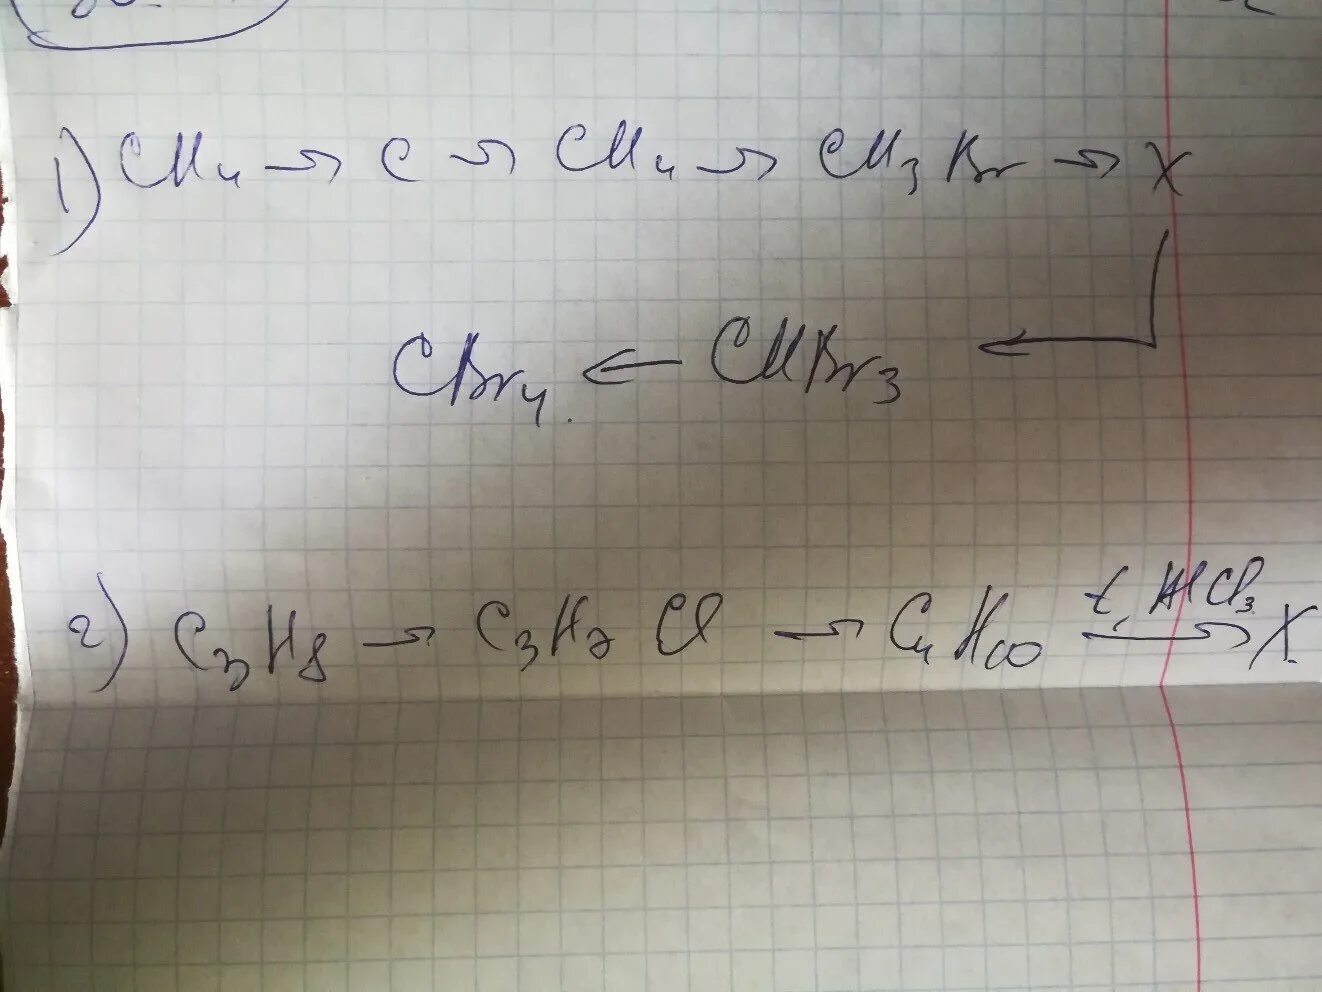 1) CH₄ → C → CH₄ → CH₃Br → X
CBr₄ ← CHBr₃ ←
2) C₃H₈ → C₃H₇Cl → C₄H₁₀ t, AlCl₃ → X